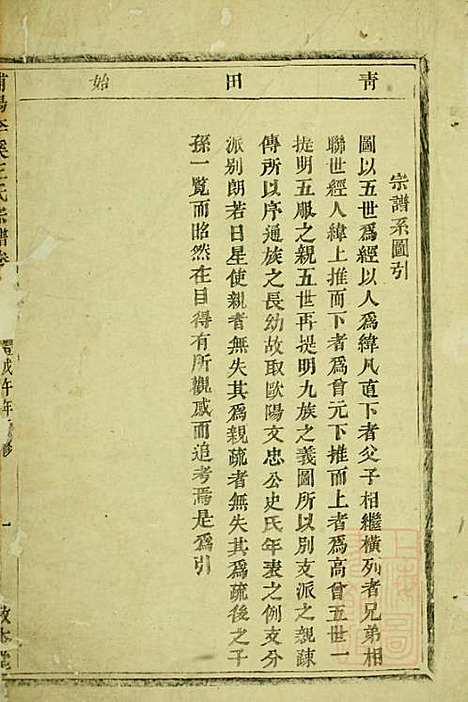 靑田始
宗譜系圖引
圖以五世爲經以人爲緯凡直下者父子相繼橫列者兄弟相
聯世經人緯上推而下者爲曾元下推而上者爲高曾五世一
提明五服之親五世再提明九族之義圖所以別支派之親疎
傳所以序通族之長幼故取歐陽文忠公史氏年表之例支分
派別朗若日星使親者無失其爲親疏者無失其爲疏後之子
孫一覽而昭然在目得有所觀感而追考焉是爲引
浦陽 溪王氏宗譜卷
戊午年 修
一
敦本堂